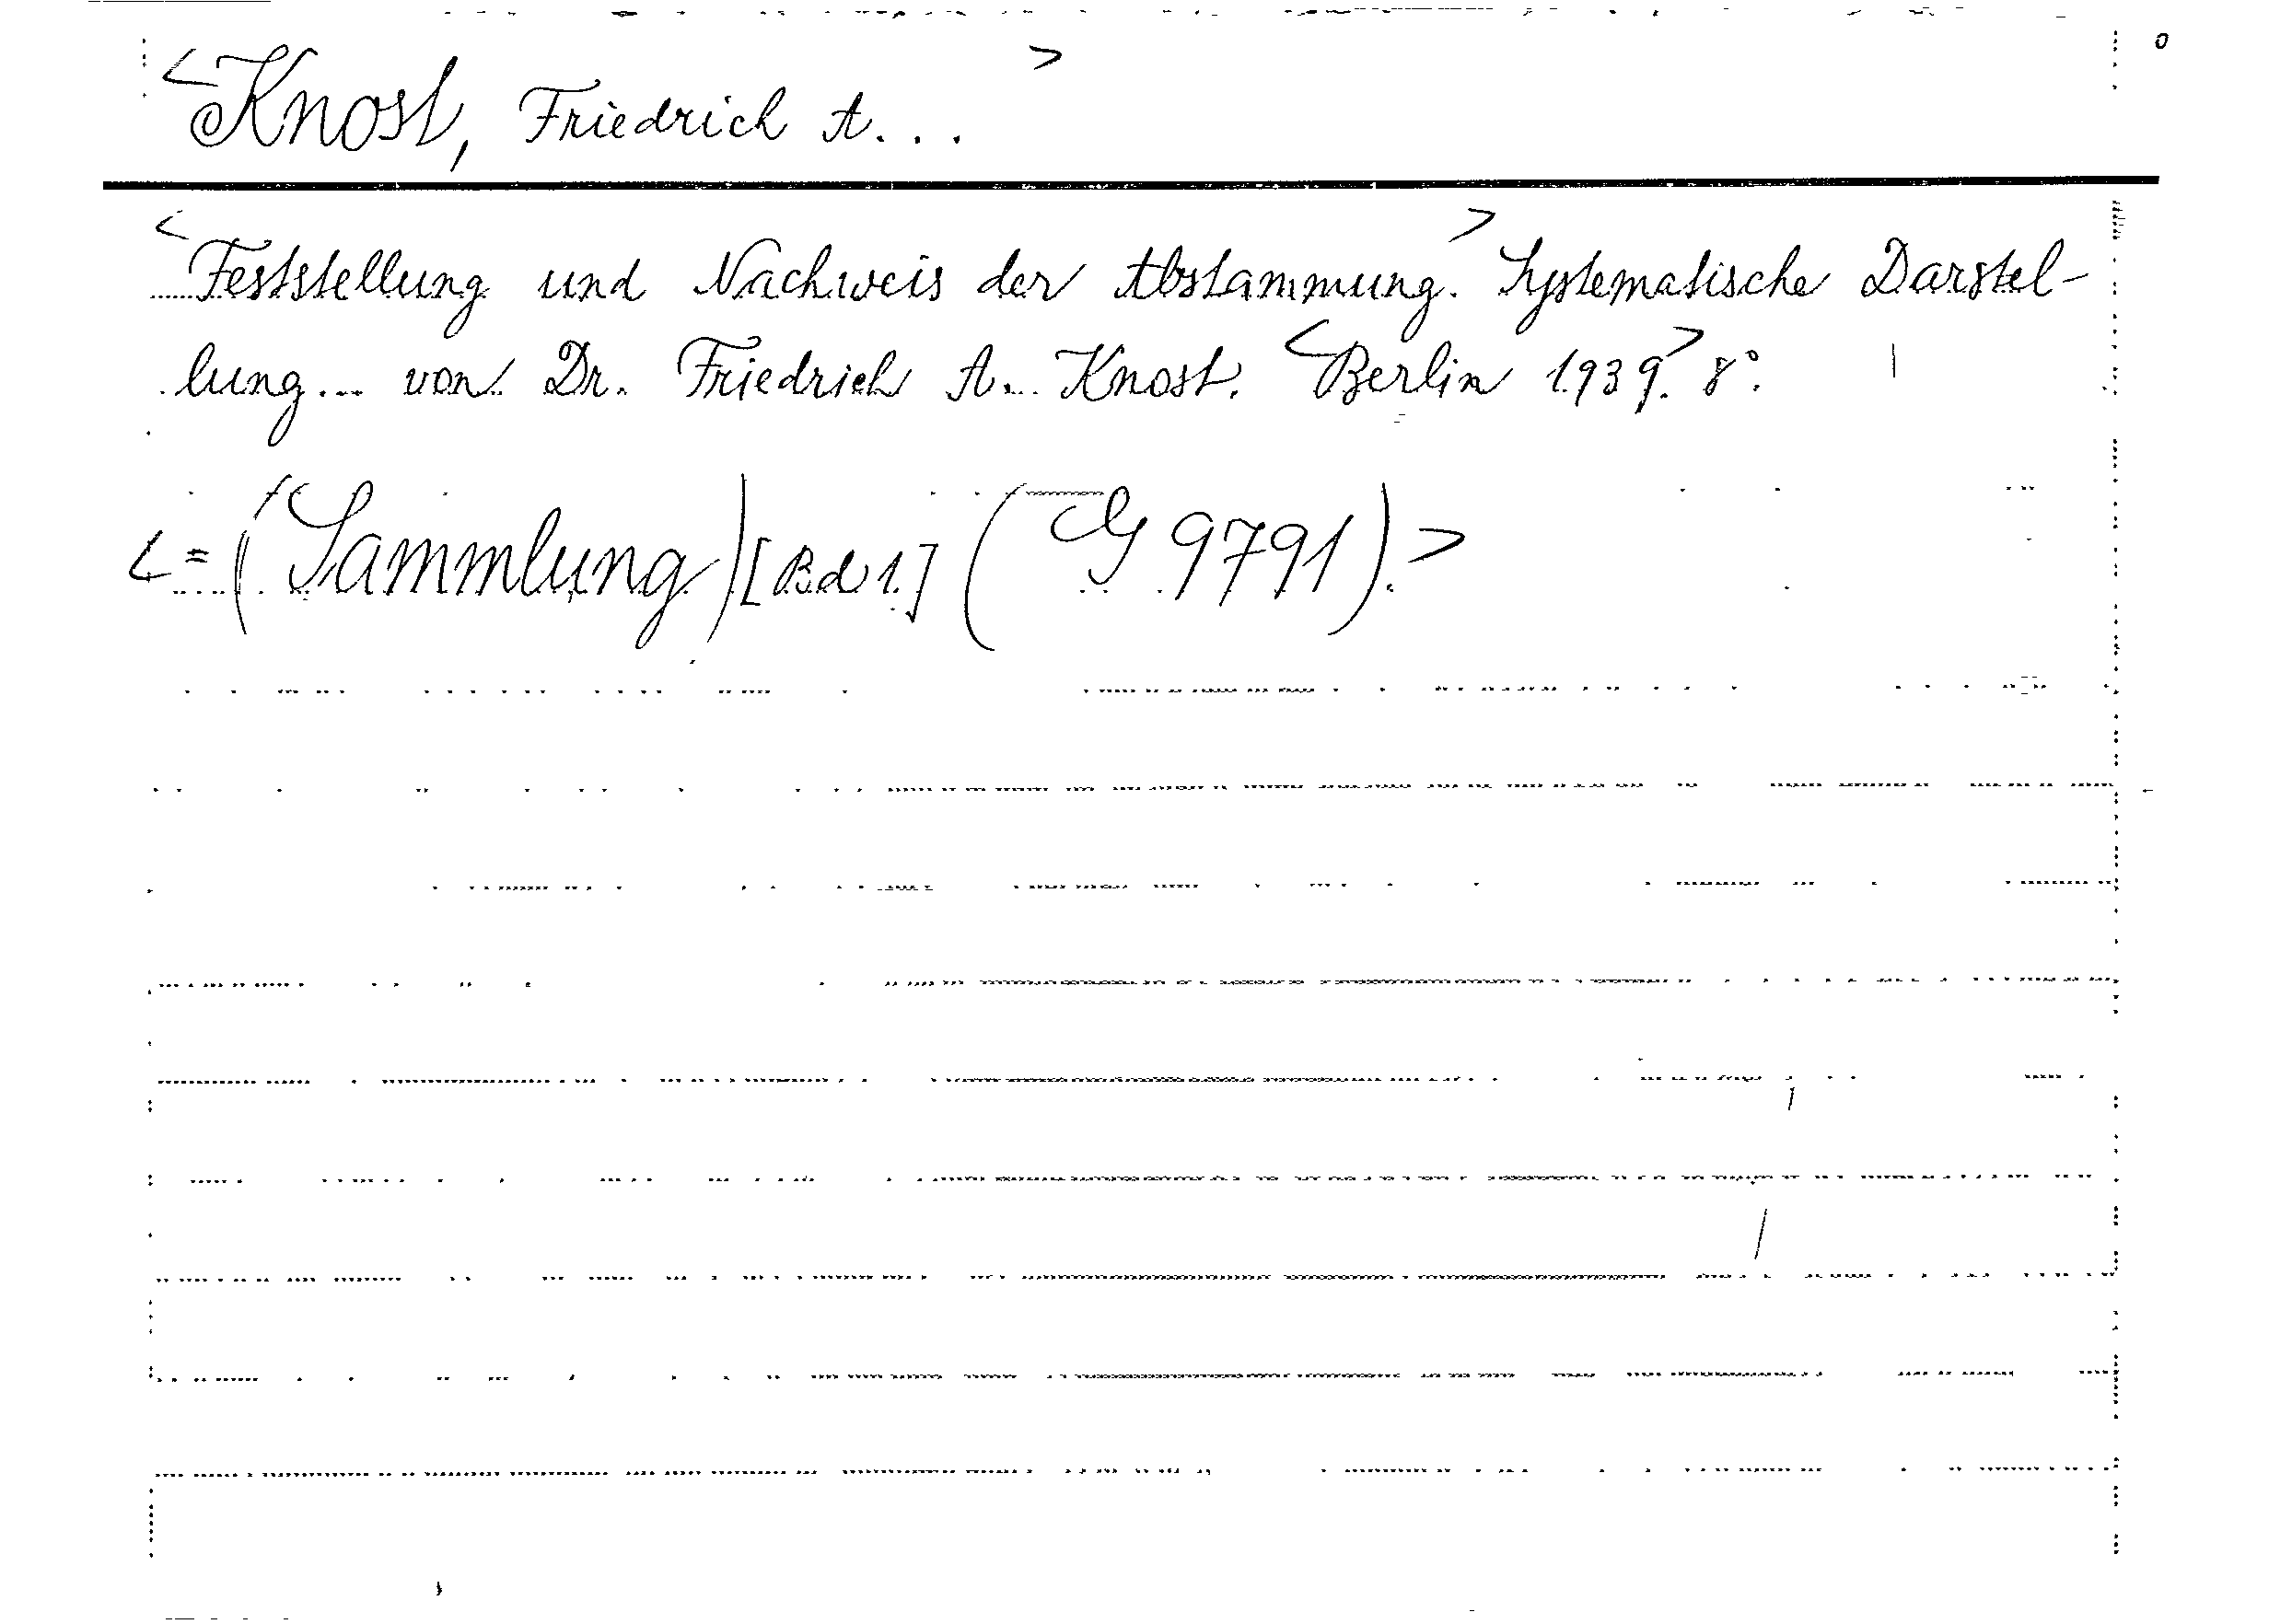 <Knost, Friedrich A...>
<Feststellung und Nachweis der Abstammung.> Systematische Darstel-
lung... von Dr. Friedrich A... Knost. <Berlin 1939.> 8°.
<= (Sammlung) [Bd 1.] (G 9791).>